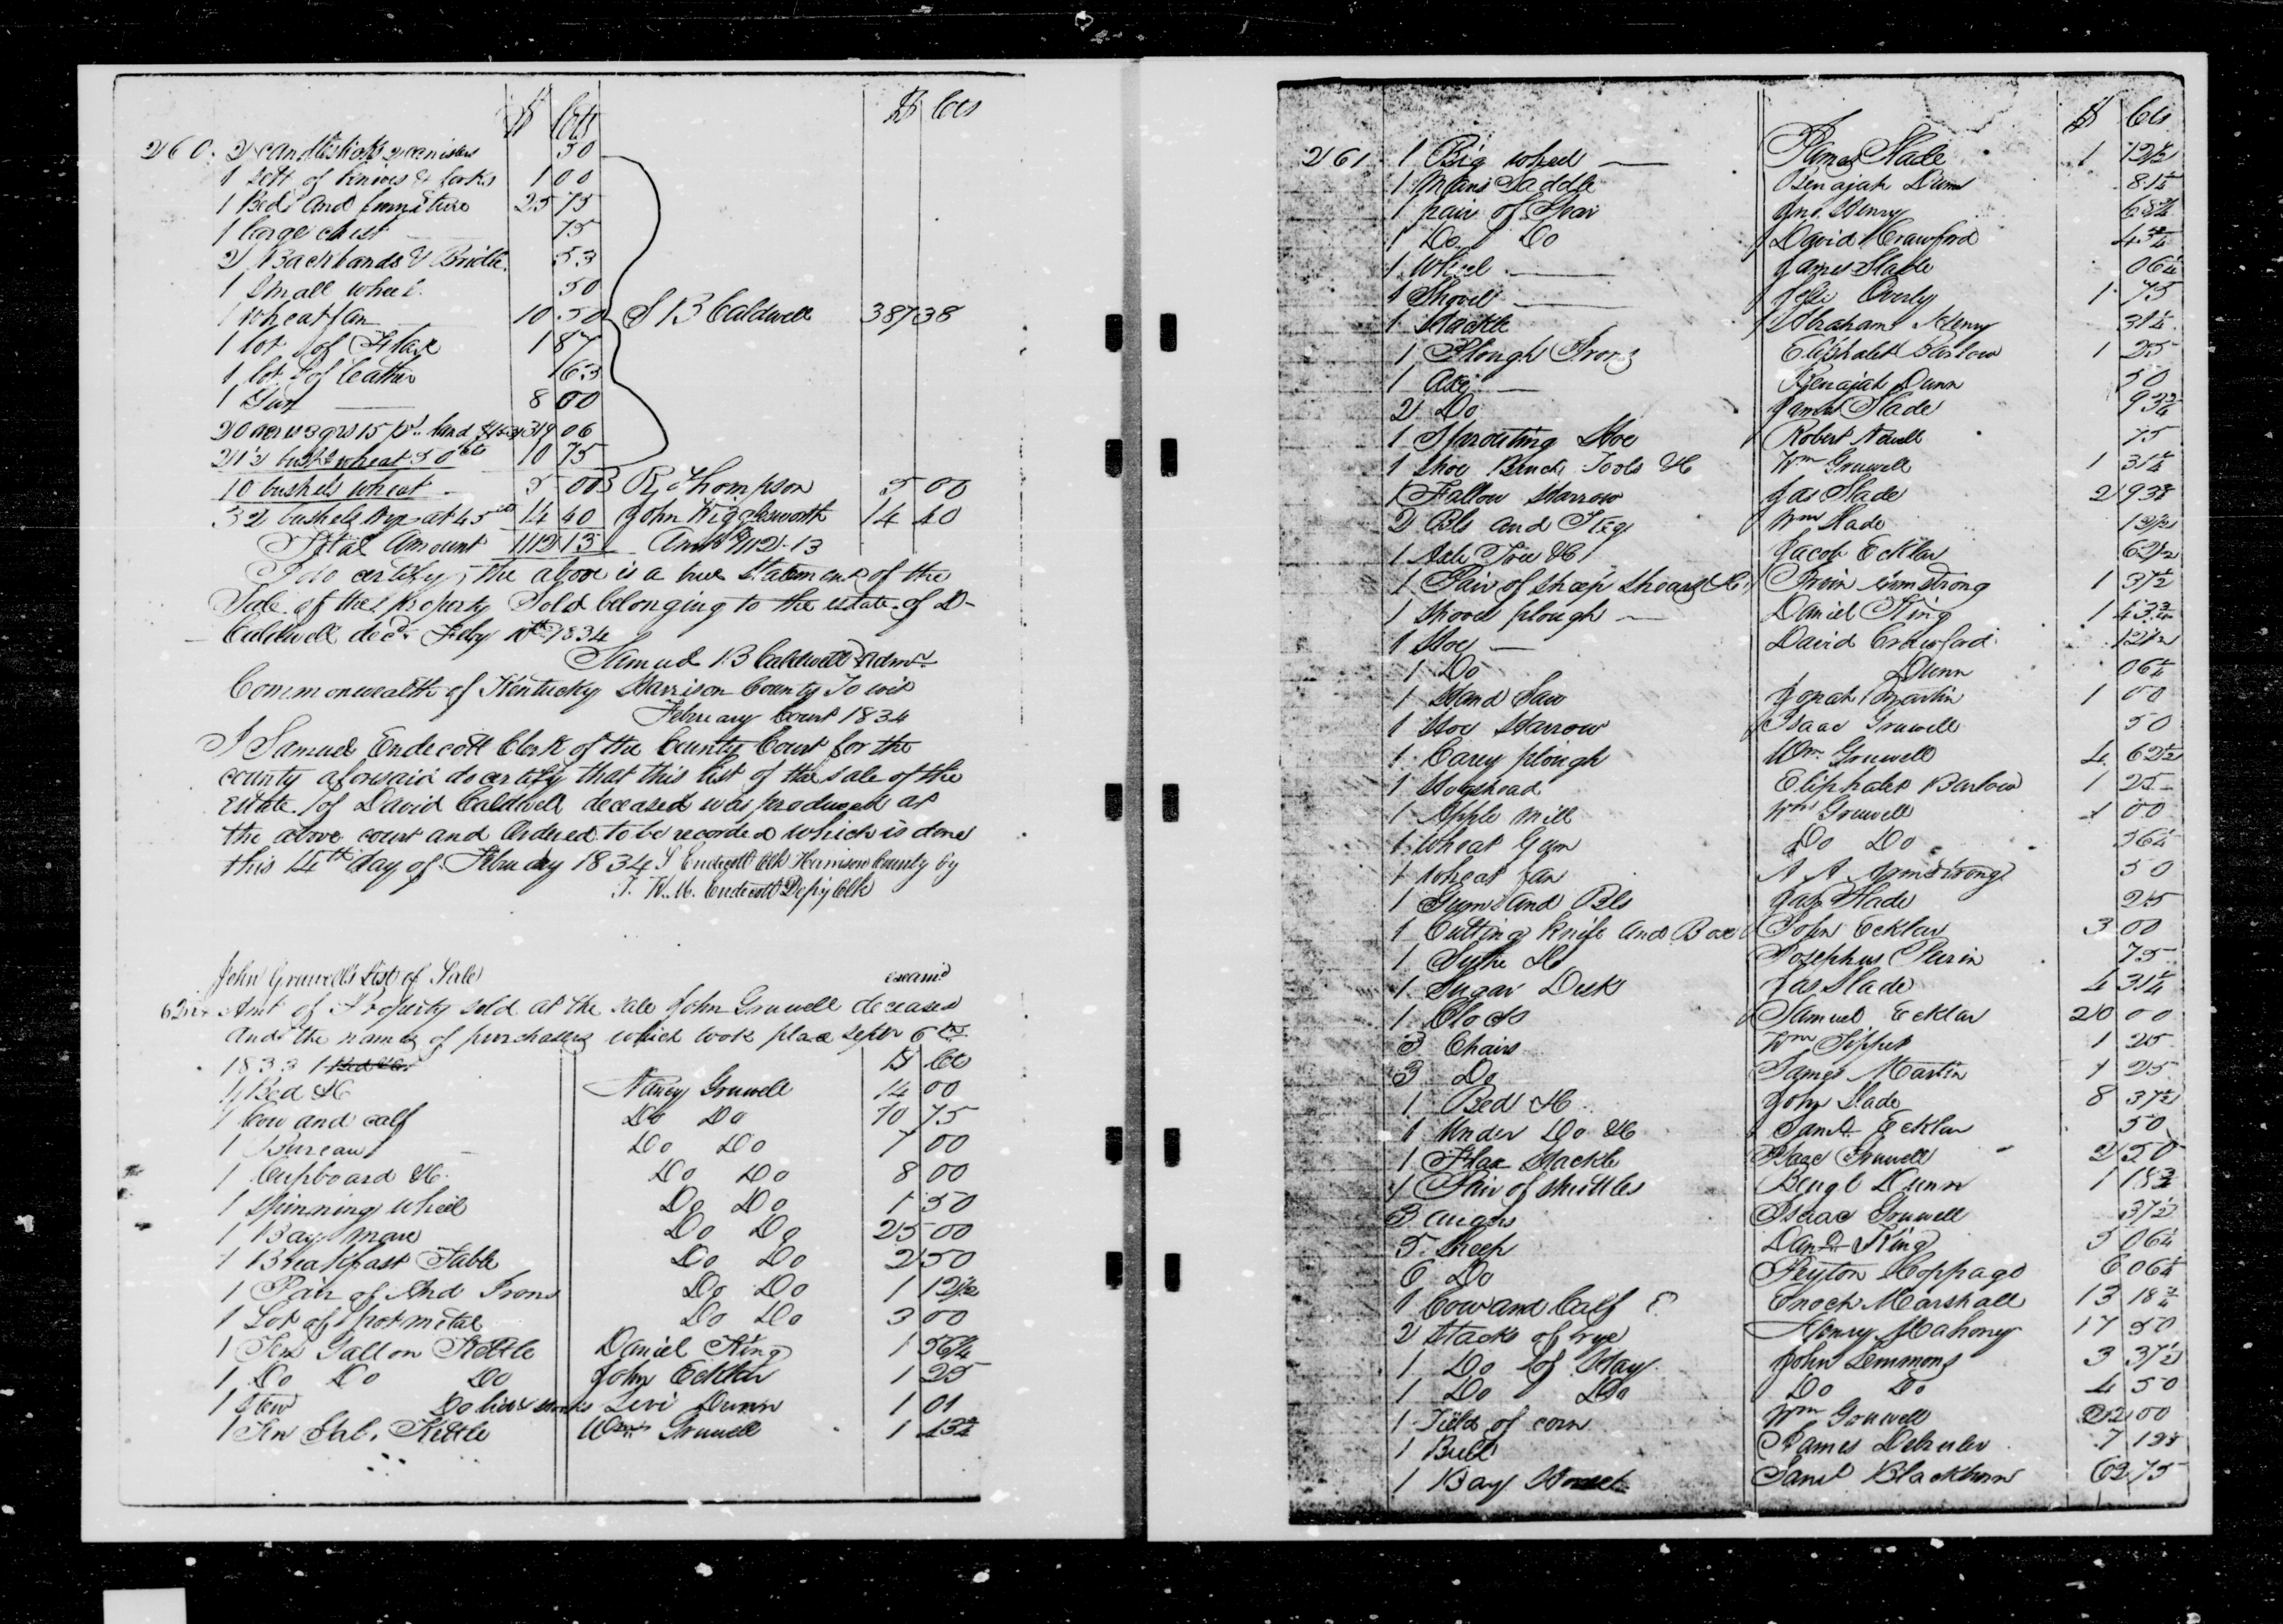 $ Cts $ Cts
260. 2 candlesticks 2 canisters 50
1 Sett of knives & forks 1 00
1 Bed and furniture 25 75
1 large chest 75
2 Backbands & Bridle 53
1 Small wheel 50
1 wheat fan 10 50 S B Caldwell 387 38
1 lot of Flax 1 87
1 lot of leather
1 Gun 8 00
20 acres 3 qrs 15 ps. land 319 06
21½ bush wheat 50 cts 10 75
10 bushels wheat 5 00 R Thompson 5 00
32 bushels Rye at 45 cts 14 40 John Wigglesworth 14 40
Total Amount 1112 13 Amt $1112.13
I do certify the above is a true Statement of the
Sale of the property Sold belonging to the estate of D
Caldwell decd. Feby 1834
Samuel B Caldwell Admr
Commonwealth of Kentucky Harrison County To wit
February Court 1834
I Samuel Endecott Clerk of the County Court for the
county aforesaid do certify that this list of the sale of the
Estate of David Caldwell deceased was produced at
the above court and Ordered to be recorded which is done
this 14th day of February 1834 S Endicott Clk Harrison County by
T. W. H. Endicott Depy Clk
John Gruwell's List of Sale examd
Amt of Property sold at the sale John Gruwell deceased
and the names of purchasers which took place Septr 6th
1833 $ Cts
1 Bed &C Nancy Gruwell 14 00
1 Cow and calf Do Do 10 75
1 Bureau Do Do 7 00
1 Cupboard &C. Do Do 8 00
1 Spinning wheel Do Do 1 50
1 Bay mare Do Do 25 00
1 Breakfast Table Do Do 2 50
1 Pair of And Irons Do Do 1 12½
1 Lot of pot metal Do Do 3 00
1 Ten Gallon Kettle Daniel King 1 56¼
1 Do Do Do John Ecklar 1 25
1 Stew Do Levi Dunn 1 01
1 Ten Gal. Kettle Wm Gruwell 1 43¾
$ Cts
261. 1 Big wheel James Slade 1 12½
1 Mans Saddle Benajah Dunn 81¼
1 pair of Gear Jno. Henry 68¾
1 Do Do David Crawford 43¾
1 Wheel James Slade 06¼
1 Shovel Overly 1 75
1 Hackle Abraham Henry 31¼
1 Plough Irons Eliphalet Barlow 1 25
1 Axe Benajah Dunn 50
2 Do James Slade 93¾
1 Sprouting Hoe Robert Newell 75
1 Shoe Bench Tools &C Wm Gruwell 1 31¼
1 Fallow Harrow Jas Slade 2 93¾
2 Bls and Keg Wm Slade 13½
1 Axle Tree &C Jacob Ecklar 62½
1 Pair of sheep Shears &C Irvin Armstrong 1 37½
1 Shovel plough Daniel King 1 43¾
1 Hoe David Crawford 12½
1 Do Dunn 06¼
1 Hand Saw Jonah Martin 1 00
1 Hoe Harrow Isaac Gruwell 50
1 Carey plough Wm Gruwell 4 62½
1 Hogshead Eliphalet Barlow 1 25
1 Apple Mill Wm Gruwell 1 00
1 Wheat Gum Do Do 56¼
1 Wheat fan A A Armstrong 50
1 Gums and Bls Jas Slade 25
1 Cutting knife and Box John Ecklar 3 00
1 Sythe &C Josephus Perin 75
1 Sugar Desk Jas Slade 4 31¼
1 Clock Samuel Ecklar 20 00
3 Chairs Wm Tippet 1 25
3 Do James Martin 1 25
1 Bed &C John Slade 8 37½
1 Under Do &C Saml Ecklar 50
1 Flax Hackle Isaac Gruwell 2 50
1 Pair of Shuttles Dunn 1 18¾
3 augers Isaac Gruwell 37½
5 Sheep Danl King 5 06¼
6 Do Peyton Hoppago 6 06¼
1 Cow and Calf Enoch Marshall 13 18¾
2 Stacks of rye Henry Mahony 17 50
1 Do of Hay John Lemmons 3 37½
1 Do Do Do Do 4 50
1 Field of corn Wm Gruwell 22 00
1 Bull James 7
1 Bay Horse Saml Blackburn 62 75